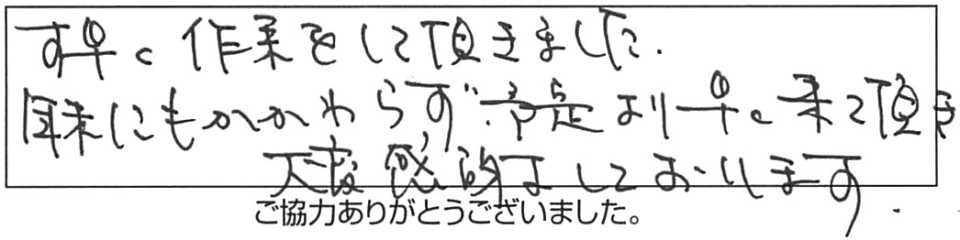 す早く作業をして頂きました.
にもかかわらず、予定より早く来て頂き
大変感謝しております.
ご協力ありがとうございました。